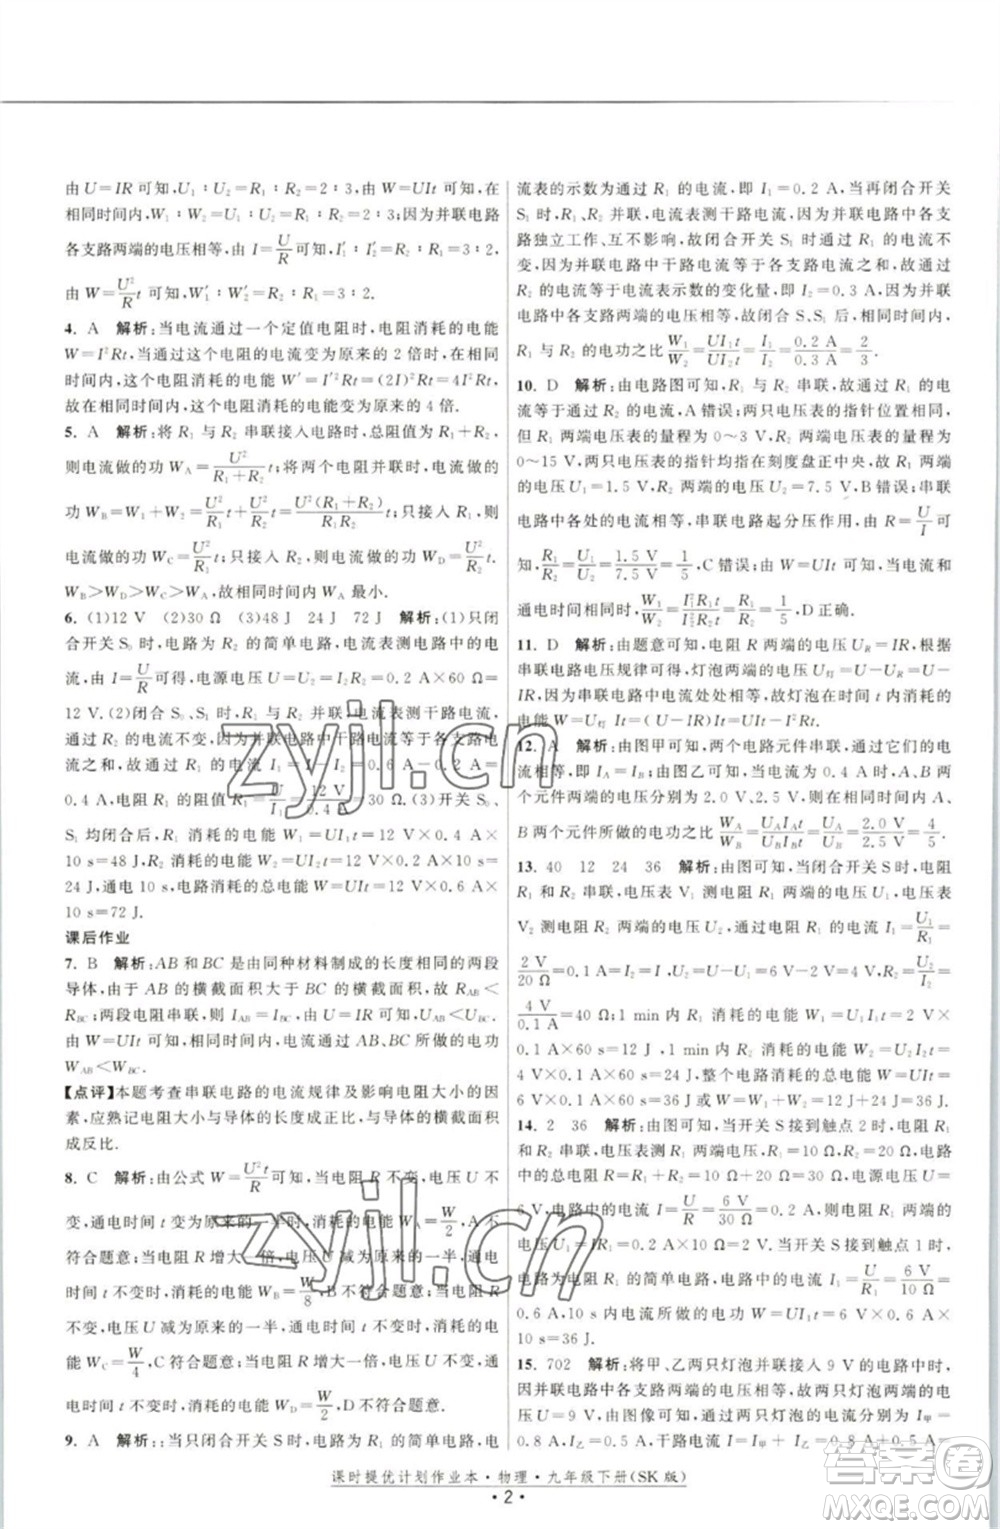 由 U=IR 可知，U₁∶U₂=R₁∶R₂=2∶3，由 W=UIt 可知，在
相同时间内，W₁∶W₂=U₁∶U₂=2∶3；因为并联电路
各支路两端的电压相等，由 I=U/R 可知，I′₁∶I′₂=R₂∶R₁=3∶2，
由 W=U²/R t 可知，W′₁∶W′₂=R₂∶R₁=3∶2.
4. A 解析：当电流通过一个定值电阻时，电阻消耗的电能
W=I²Rt，当这个电阻的电流变为原来的 2 倍时，在相同时
间内，这个电阻消耗的电能 W′=I′²Rt=(2I)²Rt=4I²Rt，
故在相同时间内，这个电阻消耗的电能变为原来的 4 倍.
5. A 解析：将 R₁ 与 R₂ 串联接入电路时，总阻值为 R₁+R₂，
则电流做的功 W_A=U²/(R₁+R₂) t；将两个电阻并联时，电流做的
功 W_B=W₁+W₂=U²/R₁ t+U²/R₂ t=U²(R₁+R₂)/(R₁R₂) t；只接入 R₁，则
电流做的功 W_C=U²/R₁ t；只接入 R₂，则电流做的功 W_D=U²/R₂ t；
W_B>W_D>W_C>W_A，故相同时间内 W_A 最小.
6. (1)12 V (2)30 Ω (3)48 J 24 J 72 J 解析：(1)只闭
合开关 S₀ 时，电路为 R₂ 的简单电路，电流表测电路中的电
流，由 I=U/R 可得，电源电压 U=U₂=I₂R₂=0.2 A×60 Ω=
12 V. (2)闭合 S₀、S₁ 时，R₁ 与 R₂ 并联，电流表测干路电流，
通过 R₂ 的电流不变，因为并联电路中干路电流等于各支路
电流之和，故通过 R₁ 的电流 I₁=I-I₂=0.6 A-0.2 A=
0.4 A，电阻 R₁ 的阻值 R₁=U/I₁=12 V/0.4 A=30 Ω. (3)开关 S₀、
S₁ 均闭合后，R₁ 消耗的电能 W₁=UI₁t=12 V×0.4 A×
10 s=48 J，R₂ 消耗的电能 W₂=UI₂t=12 V×0.2 A×10 s=
24 J，通电 10 s，电路消耗的总电能 W=UIt=12 V×0.6 A×
10 s=72 J.
课后作业
7. B 解析：AB 和 BC 是由同种材料制成的长度相同的两段
导体，由于 AB 的横截面积大于 BC 的横截面积，故 R_AB<
R_BC；两段电阻串联，则 I_AB=I_BC；由 U=IR 可知，U_AB<U_BC；
由 W=UIt 可知，在相同时间内，W_AB<W_BC.
【点评】本题考查串联电路的电流规律及影响电阻大小的因
素，应熟记电阻大小与导体的长度成正比，与导体的横截面积
成反比.
8. C 解析：由公式 W=U²t/R 可知，当电阻 R 不变，电压 U 不
变，通电时间 t 变为原来的一半时，消耗的电能 W_A=W/2，A 不
符合题意；当电阻 R 增大一倍，电压 U 减为原来的一半，通电
时间 t 不变时，消耗的电能 W_B=W/8，B 不符合题意；当电阻 R
不变，电压 U 减为原来的一半，通电时间 t 不变时，消耗的电能
W_C=W/4，C 符合题意；当电阻 R 增大一倍，电压 U 不变，通电
时间 t 不变时，消耗的电能 W_D=W/2，D 不符合题意.
9. A 解析：：当只闭合开关 S 时，电路为 R₁ 的简单电路，电
流表的示数为通过 R₁ 的电流，即 I₁=0.2 A，当再闭合开关
S₁ 时，R₁、R₂ 并联，电流表测干路电流，因为并联电路中各支
路独立工作、互不影响，故闭合开关 S₁ 后通过 R₁ 的电流不
变，因并联电路中干路电流等于各支路电流之和，故通过
R₂ 的电流等于电流表示数的变化量，即 I₂=0.3 A，因并联
电路中各支路两端的电压相等，故开关 S、S₁ 都闭合时，电阻
R₁ 与 R₂ 的电功之比 W₁/W₂=UI₁t/UI₂t=I₁/I₂=0.2 A/0.3 A=2/3.
10. D 解析：由电路图可知，R₁ 与 R₂ 串联，故通过 R₁ 的电
流等于通过 R₂ 的电流，A 错误；两只电压表的指针位置相同，
但 R₁ 两端电压表的量程为 0～3 V，R₂ 两端电压表的量程为
0～15 V，因两只电压表的指针均在刻度盘正中央，故 R₁ 两端
的电压 U₁=1.5 V，R₂ 两端的电压 U₂=7.5 V，B 错误；串联
电路中各处的电流相等，串联电路起分压作用，由 R=U/I 可
知，R₁/R₂=U₁/U₂=1.5 V/7.5 V=1/5，C 错误；由 W=UIt 可知，在相同
通电时间内，电阻 R₁、R₂ 消耗的电能之比 W₁/W₂=I₁²R₁t/I₂²R₂t=R₁/R₂=1/5，
D 正确.
11. D 解析：由题意可知，电阻 R 两端的电压 U_R=IR，根据
串联电路电压规律可得，灯泡两端的电压 U_灯=U-U_R=U-
IR；因串联电路中电流处处相等，故灯泡在时间 t 内消耗的
电能 W=U_灯 It=(U-IR)It=UIt-I²Rt.
12. A 解析：由图甲可知，两个电路元件串联，通过它们的电
流相等，即 I_A=I_B；由图乙可知，当电流为 0.4 A 时，A、B 两
个元件两端的电压分别为 2.0 V、2.5 V，故在相同时间内，A、
B 两个元件所做的电功之比 W_A/W_B=U_A I_A t/U_B I_B t=U_A/U_B=2.0 V/2.5 V=4/5.
13. 40 12 24 36 解析：由图可知，当闭合开关 S 时，电阻
R₁ 和 R₂ 串联，电压表 V₁ 测电阻 R₁ 两端的电压 U₁，电压表
V₂ 测电阻 R₂ 两端的电压 U₂，通过电阻 R₁ 的电流 I₁=U₁/R₁=
2 V/20 Ω=0.1 A，串联电路中电流处处相等，故 R₂=U₂/I₂=
4 V/0.1 A=40 Ω；1 min 内 R₁ 消耗的电能 W₁=U₁I₁t=2 V×
0.1 A×60 s=12 J，1 min 内 R₂ 消耗的电能 W₂=U₂I₂t=
4 V×0.1 A×60 s=24 J，整个电路消耗的总电能 W=UIt=
6 V×0.1 A×60 s=36 J 或 W=W₁+W₂=12 J+24 J=36 J.
14. 2 36 解析：由图可知，当开关 S 接到触点 2 时，电阻 R₁
和 R₂ 串联，电压表测电阻 R₁ 两端电压，R₂=20 Ω，此时电
路中的总电阻 R=R₁+R₂=10 Ω+20 Ω=30 Ω，电源电压 U=
6 V，电路中的电流 I=U/R=6 V/30 Ω=0.2 A，电阻 R₁ 两端的
电压 U₁=IR₁=0.2 A×10 Ω=2 V；当开关 S 接到触点 1 时，
电路为电阻 R₁ 的简单电路，电路中的电流 I₁=U/R₁=6 V/10 Ω=
0.6 A，10 s 内电流所做的电功 W=UI₁t=6 V×0.6 A×
10 s=36 J.
15. 702 解析：将甲、乙两只灯泡并联接入 9 V 的电路中时，
因并联电路各支路两端的电压相等，故两只灯泡两端的电
压 U=9 V，由图像可知，此时通过两只灯泡的电流为 I_甲=
0.8 A，I_乙=0.5 A，因并联电路干路中的电流等于各支路电
课时提优计划作业本·物理·九年级下册(SK 版)
·2·
zyjl.cn
zyjl.cn
答案圈
MXQE.COM